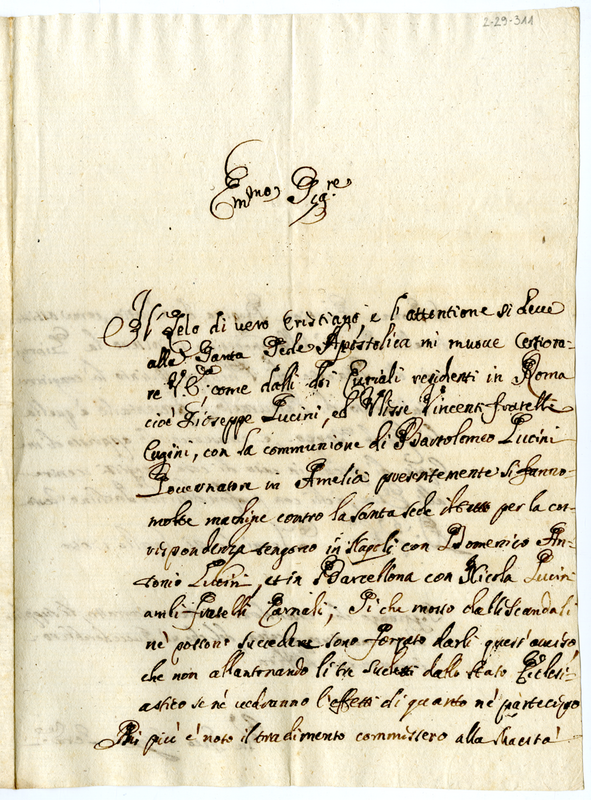 2-29-311
Em.mo Sig.re
Il Zelo di vero Cristiano e l'attentione si deve
alla Santa Sede Apostolica mi muove Certiora-
re V. E. come dalli doi Curiali residenti in Roma
cioè Gioseppe Lucini, ed Ulisse Vincenti fratelli
Cugini, con la communione di Bartolomeo Lucini
Governatore in Amelia presentemente si fanno
molte machine contro la santa sede il tutto per la cor-
rispondenza tengono in Napoli con Domenico An-
tonio Lucini, et in Barcellona con Nicola Lucini
ambi fratelli Carnali; Si che mosso dalli scandali
nè possono succedere sono forzato darli quest'auviso,
che non allantanando li tre sudetti dallo stato Ecclesi-
astico se nè vedranno l'effetti di quanto nè partecipo
Più più è noto il tradimento commissero alla Maestà